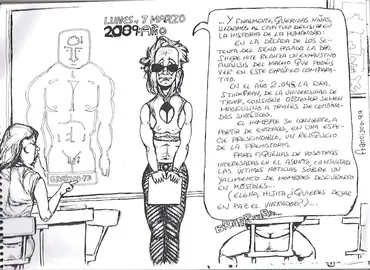 LUNES, 7 MARZO
2089:AÑO
GRAFICO-73
...Y FINALMENTE, QUERIDAS NIÑAS,
LLEGAMOS AL CAPITULO DECISIVO EN
LA HISTORIA DE LA HUMANIDAD:
EN LA DECADA DE LOS SE-
TENTA DEL SIGLO PASADO LA DRA.
SHERE HITE REALIZA UN EXHAUSTIVO
ANALISIS DEL MACHO QUE PODEIS
VER EN ESTE GRAFICO COMPARA-
TIVO.
EN EL AÑO 2.048 LA DRA.
DE LA UNIVERSIDAD DE
CONSIGUE OBTENER SEMEN
MASCULINO A TRAVES DE COMBINA-
DOS SINTETICOS.
EL HOMBRE SE CONVIERTE, A
PARTIR DE ENTONCES, EN UNA ESPE-
CIE PRESCINDIBLE, UN RELIQUICIO
DE LA PREHISTORIA.
PARA AQUELLAS DE VOSOTRAS
INTERESADAS EN EL ASUNTO, CONSULTAD
LAS ULTIMAS NOTICIAS SOBRE UN
YACIMIENTO DE HOMBRES DESCUBIERTO
EN MOSTOLES...
(ELENA, HIJITA, ¿QUIERES DEJAR
EN PAZ EL VIBRADOR?)...